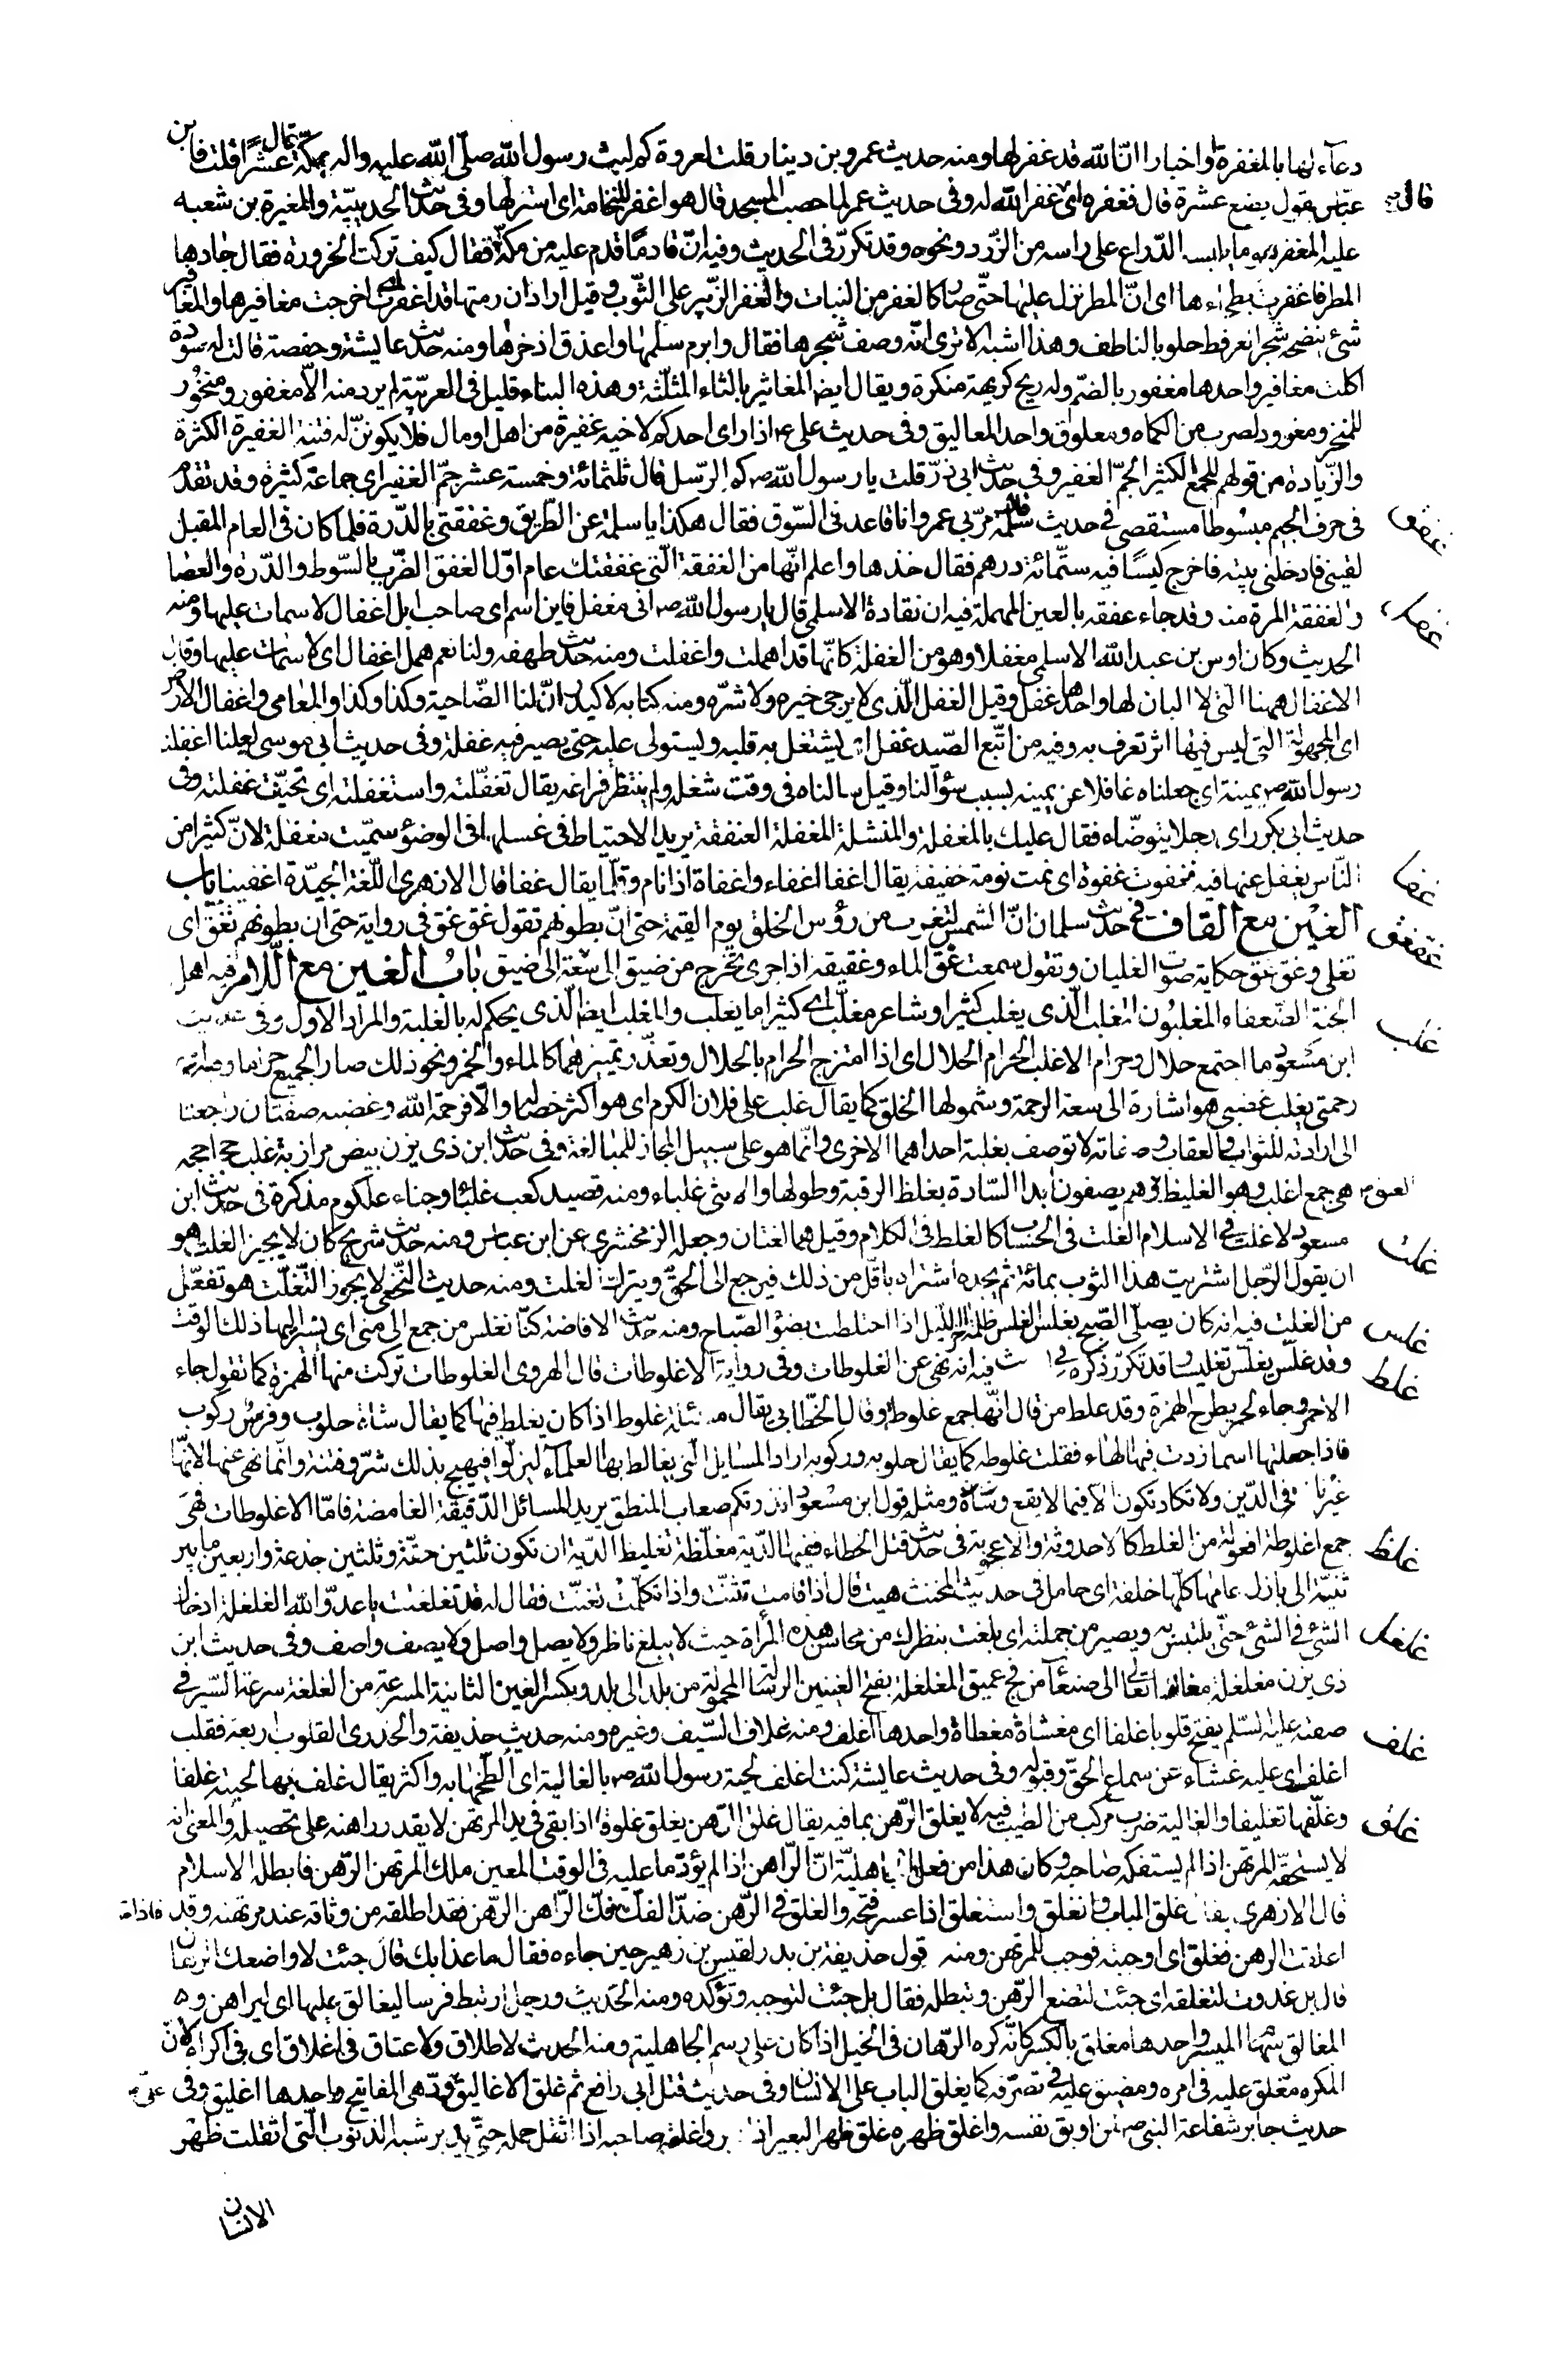 دعاء لها بالمغفرة او اخبارا انّ الله قد غفر لها ومنه حديث عمرو بن دينار قلت لعروة كم لبث رسول الله صلّى الله عليه واله بمكّة قال عشرًا قلت فابن
عبّاس يقول بضع عشرة قال فغفره اى غفر الله له وفى حديث عمر لما حصب المسجد قال هو اغفر للنخامة اى استر لها وفى حديث الحديبيّة والمغيرة بن شعبه
قال
عليه المغفر هو ما يلبسه الدّراع على راسه من الزّرد ونحوه وقد تكرّر فى الحديث وفيه انّ قادمًا قدم عليه من مكّة فقال كيف تركت الحزورة فقال جادها
المطر فاغفرت بطحاءها اى انّ المطر نزل عليها حتّى صار كالغفر من النبات والغفر الزّبير على الثّوب وقيل اراد ان رمثها قد اغفرت اى اخرجت مغافيرها والمغافير
شئ ينضحه شجر العرفط حلو بالناطف وهذا اشبه الا ترى انّه وصف شجرها فقال وابرم سلمها واعذق اذخرها ومنه حديث عايشة وحفصة قالت له سودة
اكلت مغافير واحدها مغفور بالضمّ وله ريح كريهة منكرة ويقال ايضا المغاثير بالثاء المثلّثة وهذه البناء قليل فى العربيّة لم يرد منه الّا مغفور ومنخور
للمنخر ومغرود لضرب من الكماه ومعلوق واحد المعاليق وفى حديث على ع اذا راى احدكم لاخيه غفيرة من اهل او مال فلا يكوننّ له فتنة الغفيرة الكثرة
والزّيادة من قولهم للجمع الكثير الجمّ الغفير وفى حديث ابى ذرّ قلت يا رسول الله ص كم الرّسل قال ثلثمائة وخمسة عشر جمّ الغفير اى جماعة كثيرة وقد تقدّم
غفق
فى حرف الجيم مبسوطا مستقصى فى حديث سلمة قال مرّ بى عمر وانا قاعد فى السّوق فقال هكذا يا سلمة عن الطّريق وغفقنى بالدّرة فلما كان فى العام المقبل
لقينى فادخلنى بيته فاخرج كيسًا فيه ستّمائة درهم فقال خذها واعلم انّها من الغفقة الّتى غفقتك عام اوّل الغفق الضّرب بالسّوط والدّرة والعصا
غفل
والغفقة المرة منه وقد جاء عفقه بالعين المهملة فيه ان نقادة الاسلمى قال يا رسول الله ص انى مغفل فاين اسم اى صاحب ابل اغفال لا سمات عليها ومنه
الحديث وكان اوس بن عبد الله الاسلمى مغفلا وهو من الغفلة كانّها قد اهملت واغفلت ومنه حديث طهفه ولنا نعم همل اغفال اى لا سمات عليها وقيل
الاغفال ههنا التى لا البان لها واحدها غفل وقيل الغفل الّذى لا يرجى خيره ولا شرّه ومنه كتابه لاكيدر انّ لنا الضّاحية وكذا وكذا والمعامى واغفال الارض
اى المجهولة التى ليس فيها اثر تعرف به وفيه من اتّبع الصّيد غفل اى يشتغل به قلبه ويستولى عليه حتى يصير فيه غفلة وفى حديث ابى موسى لعلنا اغفلنا
رسول الله ص يمينه اى جعلناه غافلا عن يمينه بسبب سؤالنا وقيل سالناه فى وقت شغله ولم ننتظر فراغه يقال تغفّلته واستغفلته اى تحيّنت غفلته وفى
حديث ابى بكر راى رجلا يتوضّاء فقال عليك بالمغفلة والمنشلة المغفلة العنفقة يريد الاحتياط فى غسلها فى الوضؤ سمّيت مغفلة لانّ كثيرا من
غفا
النّاس يغفل عنها فيه فغفوت غفوة اى نمت نومة خفيفة يقال اغفا اغفاء واغفاة اذا نام وقلّما يقال غفا قال الازهرى اللّغة الجيّدة اغفيت باب
غقغق
الغين مع القاف فى حديث سلمان انّ الشمس لتقرب من رؤس الخلق يوم القيمة حتى انّ بطونهم تقول غق غق فى رواية حتى ان بطونهم تغق اى
تغلى وغق غق حكاية صوت الغليان وتقول سمعت غق الماء وغقيقه اذا جرى فخرج من ضيق الى سعة الى ضيق باب الغين مع اللّام فيه اهل
غلب
الجنة الضّعفاء المغلبون المغلب الّذى يغلب كثيرا وشاعر مغلّب اى كثيرا ما يغلب والمغلب ايضا الّذى يحكم له بالغلبة والمراد الاول وفى حديث
ابن مسعود ما اجتمع حلال وحرام الا غلب الحرام الحلال اى اذا امتزج الحرام بالحلال وتعذّر تميزهما كالماء والخمر ونحو ذلك صار الجميع حراما وفيه انّ
رحمتى يغلب غضبى هو اشارة الى سعة الرحمة وشمولها الخلق كما يقال غلب على فلان الكرم اى هو اكثر خصاله والّا فرحمة الله وغضبه صفتان راجعتا
الى ارادته للثواب والعقاب وصفاته لا توصف بغلبة احداهما الاخرى وانّما هو على سبيل المجاز للمبالغة وفى حديث ابن ذى يزن بيض مرازبة غلب جحاجحه
العنق هى جمع اغلب وهو الغليظ وهم يصفون ابدا السّادة بغلظ الرقبة وطولها والانثى غلباء ومنه قصيد كعب غلباء وجناء علكوم مذكرة فى حديث ابن
غلت
مسعود لا غلت فى الاسلام الغلت فى الحساب كالغلط فى الكلام وقيل هما لغتان وجعله الزمخشرى عن ابن عباس ومنه حديث شريح كان لا يجيز الغلت هو
ان يقول الرّجل اشتريت هذا الثوب بمائة ثم يجده اشتراه باقل من ذلك فيرجع الى الحقّ ويترك الغلت ومنه حديث النّخعى لا يجوز التّغلّت هو تفعّل
غلس
من الغلت فيه انه كان يصلّى الصّبح بغلس الغلس ظلمة اخر الليل اذا اختلطت بضؤ الصّباح ومنه حديث الافاضة كنّا نغلس من جمع الى منى اى نسير اليها ذلك الوقت
غلط
وقد غلّس يغلّس تغليسا وقد تكرّر ذكره فى فيه انه نهى عن الغلوطات وفى رواية الاغلوطات قال الهروى الغلوطات تركت منها الهمزة كما تقول جاء
الاحمر وجاء لحمر بطرح الهمزة وقد غلط من قال انّها جمع غلوطة وقال الخطّابى يقال مسئلة غلوط اذا كان يغلط فيها كما يقال شاة حلوب وفرس ركوب
فاذا جعلتها اسما زدت فيها الهاء فقلت غلوطه كما يقال حلوبه وركوبه اراد المسايل الّتى يغالط بها العلماء ليزلّوا فيهيج بذلك شرّ وفتنة وانّما نهى عنها لانّها
غير نافعة فى الدّين ولا تكاد تكون الّا فيما لا يقع ومثله قول ابن مسعود انذرتكم صعاب المنطق يريد المسائل الدّقيقة الغامضة فامّا الاغلوطات فهى
غلظ
جمع اغلوطة افعولة من الغلط كالاحدوثة والاعجوبة فى حديث قتل الخطاء ففيها الدّية مغلّظة تغليظ الدّية ان تكون ثلثين حقّة وثلثين جذعة واربعين ما بين
ثنيّة الى بازل عامها كلّها خلفة اى حامل فى حديث المخنث هيت قال اذا قامت تثنّت واذا تكلّمت تغنّت فقال له قد تغلغلت يا عدوّ الله الغلغلة ادخال
غلغل
الشئ فى الشئ حتّى يلتبس به ويصير من جملته اى بلغت بنظرك من محاسن هذه المرأة حيث لا يبلغ ناظر ولا يصل واصل ولا يصف واصف وفى حديث ابن
ذى يزن مغلغلة مغالقها تعالى الى صنعآ من فج عميق المغلغلة بفتح الغينين الرسالة المحمولة من بلد الى بلد وبكسر الغين الثانية المسرعة من الغلغلة سرعة السّير فى
غلف
صفته عليه السّلم يفتح قلوبا غلفا اى مغشاة مغطاة واحدها اغلف ومنه غلاف السّيف وغيره ومنه حديث حذيفة والخدرى القلوب اربعة فقلب
اغلف اى عليه غشاء عن سماع الحقّ وقبوله وفى حديث عايشة كنت اغلف لحية رسول الله ص بالغالية اى الطخها به واكثر يقال غلف بها لحيته غلفا
غلق
وغلّفها تغليفا والغالية ضرب مركب من الطيب فيه لا يغلق الرّهن بما فيه يقال غلق الرّهن يغلق غلوقا اذا بقى فى يد المرتهن لا يقدر راهنه على تحصيله والمعنى انه
لا يستحقّه المرتهن اذا لم يستفكه صاحبه وكان هذا من فعل الجاهليّة انّ الرّاهن اذا لم يؤدّ ما عليه فى الوقت المعين ملك المرتهن الرّهن فابطله الاسلام
قال الازهرى يقال غلق الباب وانغلق واستغلق اذا عسر فتحه والغلق فى الرّهن ضدّ الفك فاذا فكّ الرّاهن الرّهن فقد اطلقه من وثاقه عند مرتهنه وقد
اغلقت الرهن فغلق اى اوجبته فوجب للمرتهن ومنه قول حذيفة بن بدر لقيس بن زهير حين جاءه فقال ما غدا بك قال جئت لاواضعك الرهان
قال بل غدوت لتغلقه اى جئت لتضع الرّهن وتبطله فقال بل جئت لتوجبه وتؤكده ومنه الحديث ورجل ارتبط فرسا ليغالق عليها اى ليراهن و
المغالق سهام الميسر واحدها مغلق بالكسر كانّه كره الرّهان فى الخيل اذا كان على رسم الجاهلية ومنه الحديث لا طلاق ولا عتاق فى اغلاق اى فى اكراه لانّ
المكره مغلق عليه فى امره ومضيق عليه فى تصرّفه كما يغلق الباب على الانسان وفى حديث قتل ابى رافع ثم غلق الاغاليق على ودّ هى المفاتيح واحدها اغليق وفى
حديث جابر شفاعة النبى ص لمن اوبق نفسه واغلق ظهره غلق ظهر البعير اذا دبر واغلقه صاحبه اذا اثقل حمله حتّى يدبر شبه الذنوب الّتى اثقلت ظهر
الانسان